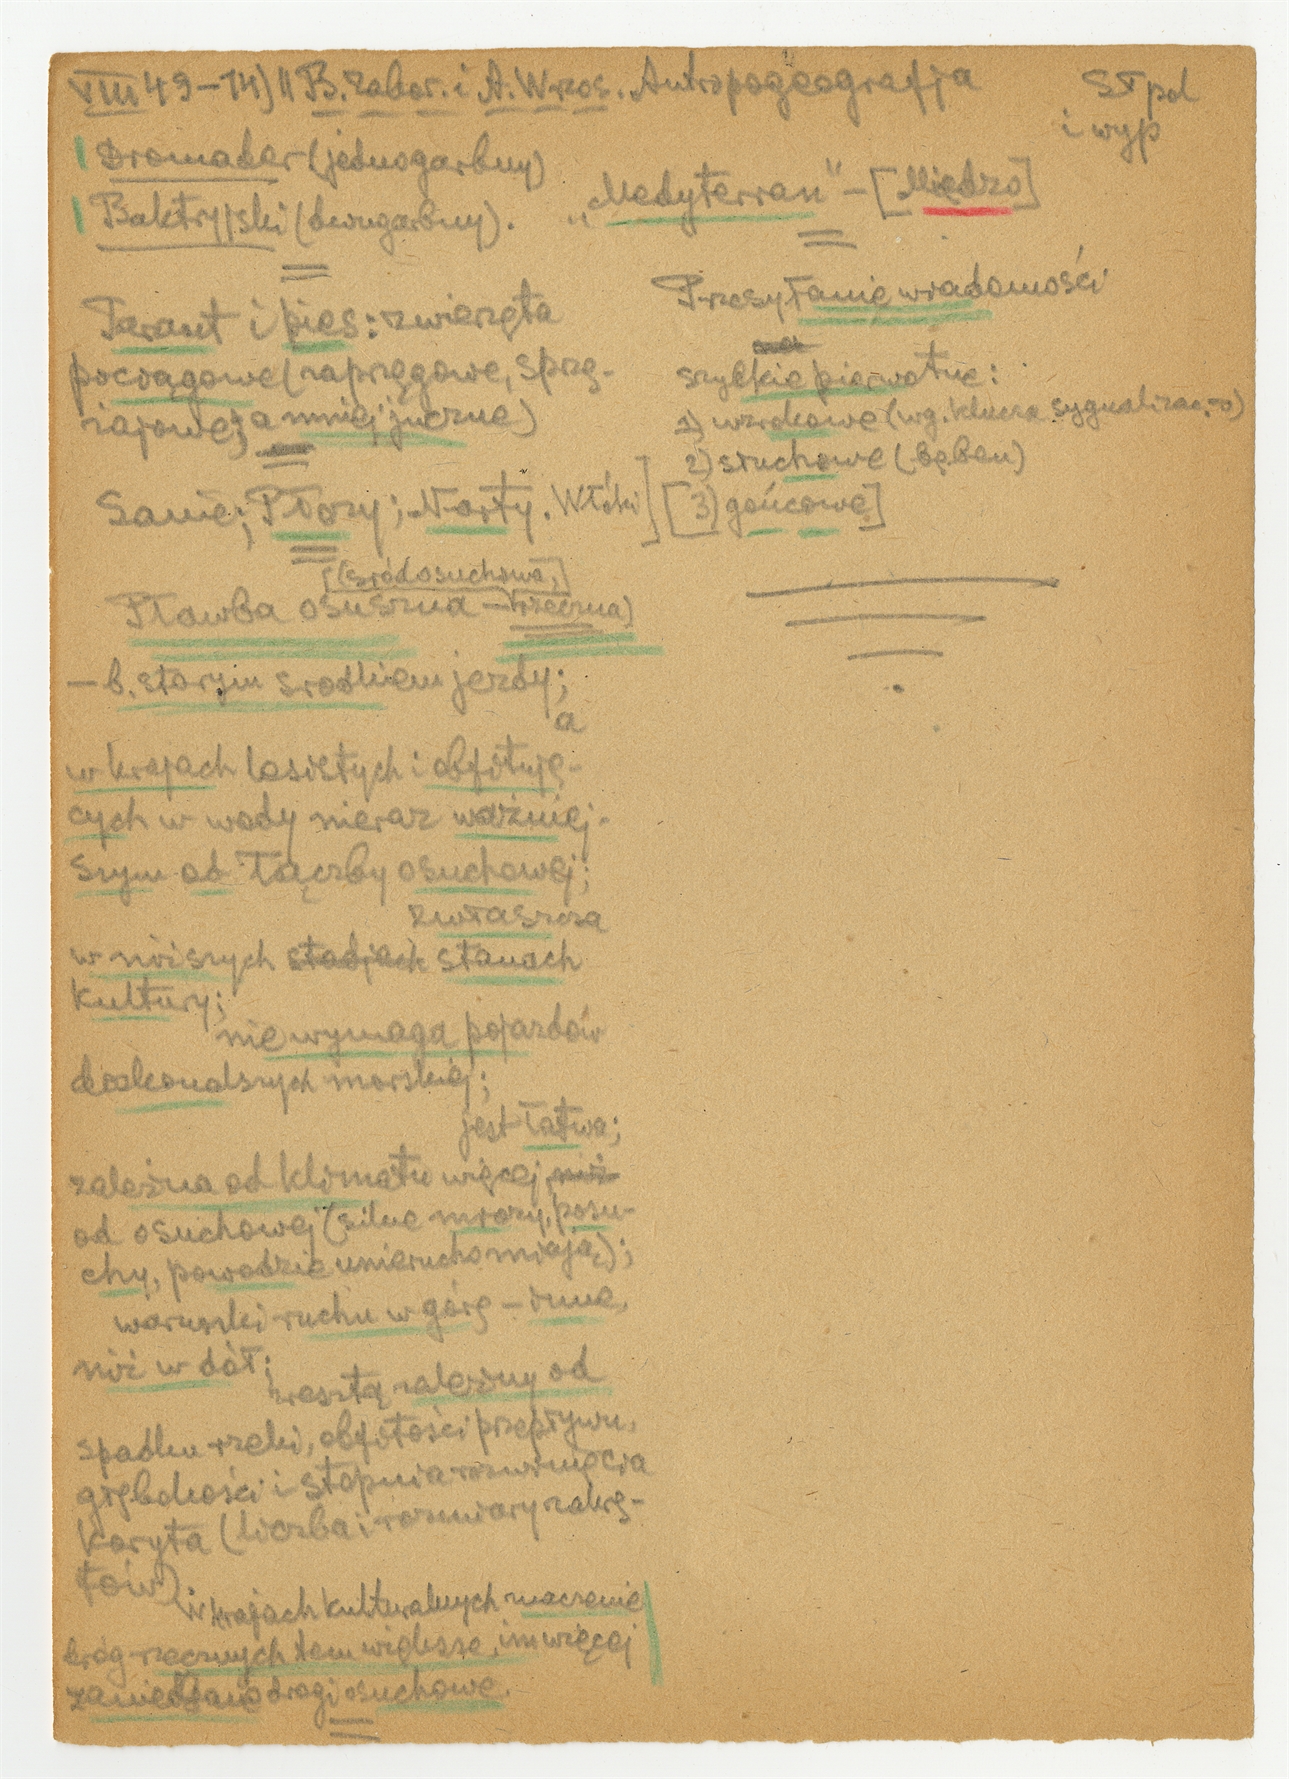 VIII 49–14) || B. Zabor. i A. Wrzos. „Antropogeografja
Sł pol
i wyp
Dromader (jednogarbny)
Baktryjski (dwugarbny).
„Medyterran” – [Międzo]
Tarant i pies: zwierzęta
pociągowe (zaprzęgowe, sprzę-
żajowe; a mniej juczne)
Sanie; Płozy; Narty. Włóki]
[(śródosuchowa,]
Pławba osuszna – rzeczna)
– b. starym srodkiem jezdy;
a
w krajach lasistych i obfitują-
cych w wody nieraz ważniej-
szym od łączby osuchowej;
zwłaszcza
w niższych stadjach stanach
kultury;
nie wymaga pojazdów
doskonalszych morskiej;
jest łatwa;
zależna od klimatu więcej niż
od osuchowej (silne mrozy, posu-
chy, powodzie unieruchomiają);
warunki ruchu w górę – inne,
niż w dół;
zresztą zależny od
spadku rzeki, obfitości przepływu,
głębokości i stopnia rozwinięcia
koryta (liczba i rozmiary zakrę-
tów).
W krajach kulturalnych znaczenie
dróg rzecznych tem większe, im więcej
zaniedbano drogi osuchowe.
Przesyłanie wiadomości
szybkie pierwotne:
1) wzrokowe (wg. klucza sygnalizac,-o)
2) słuchowe (bęben)
[3) gońcowe]